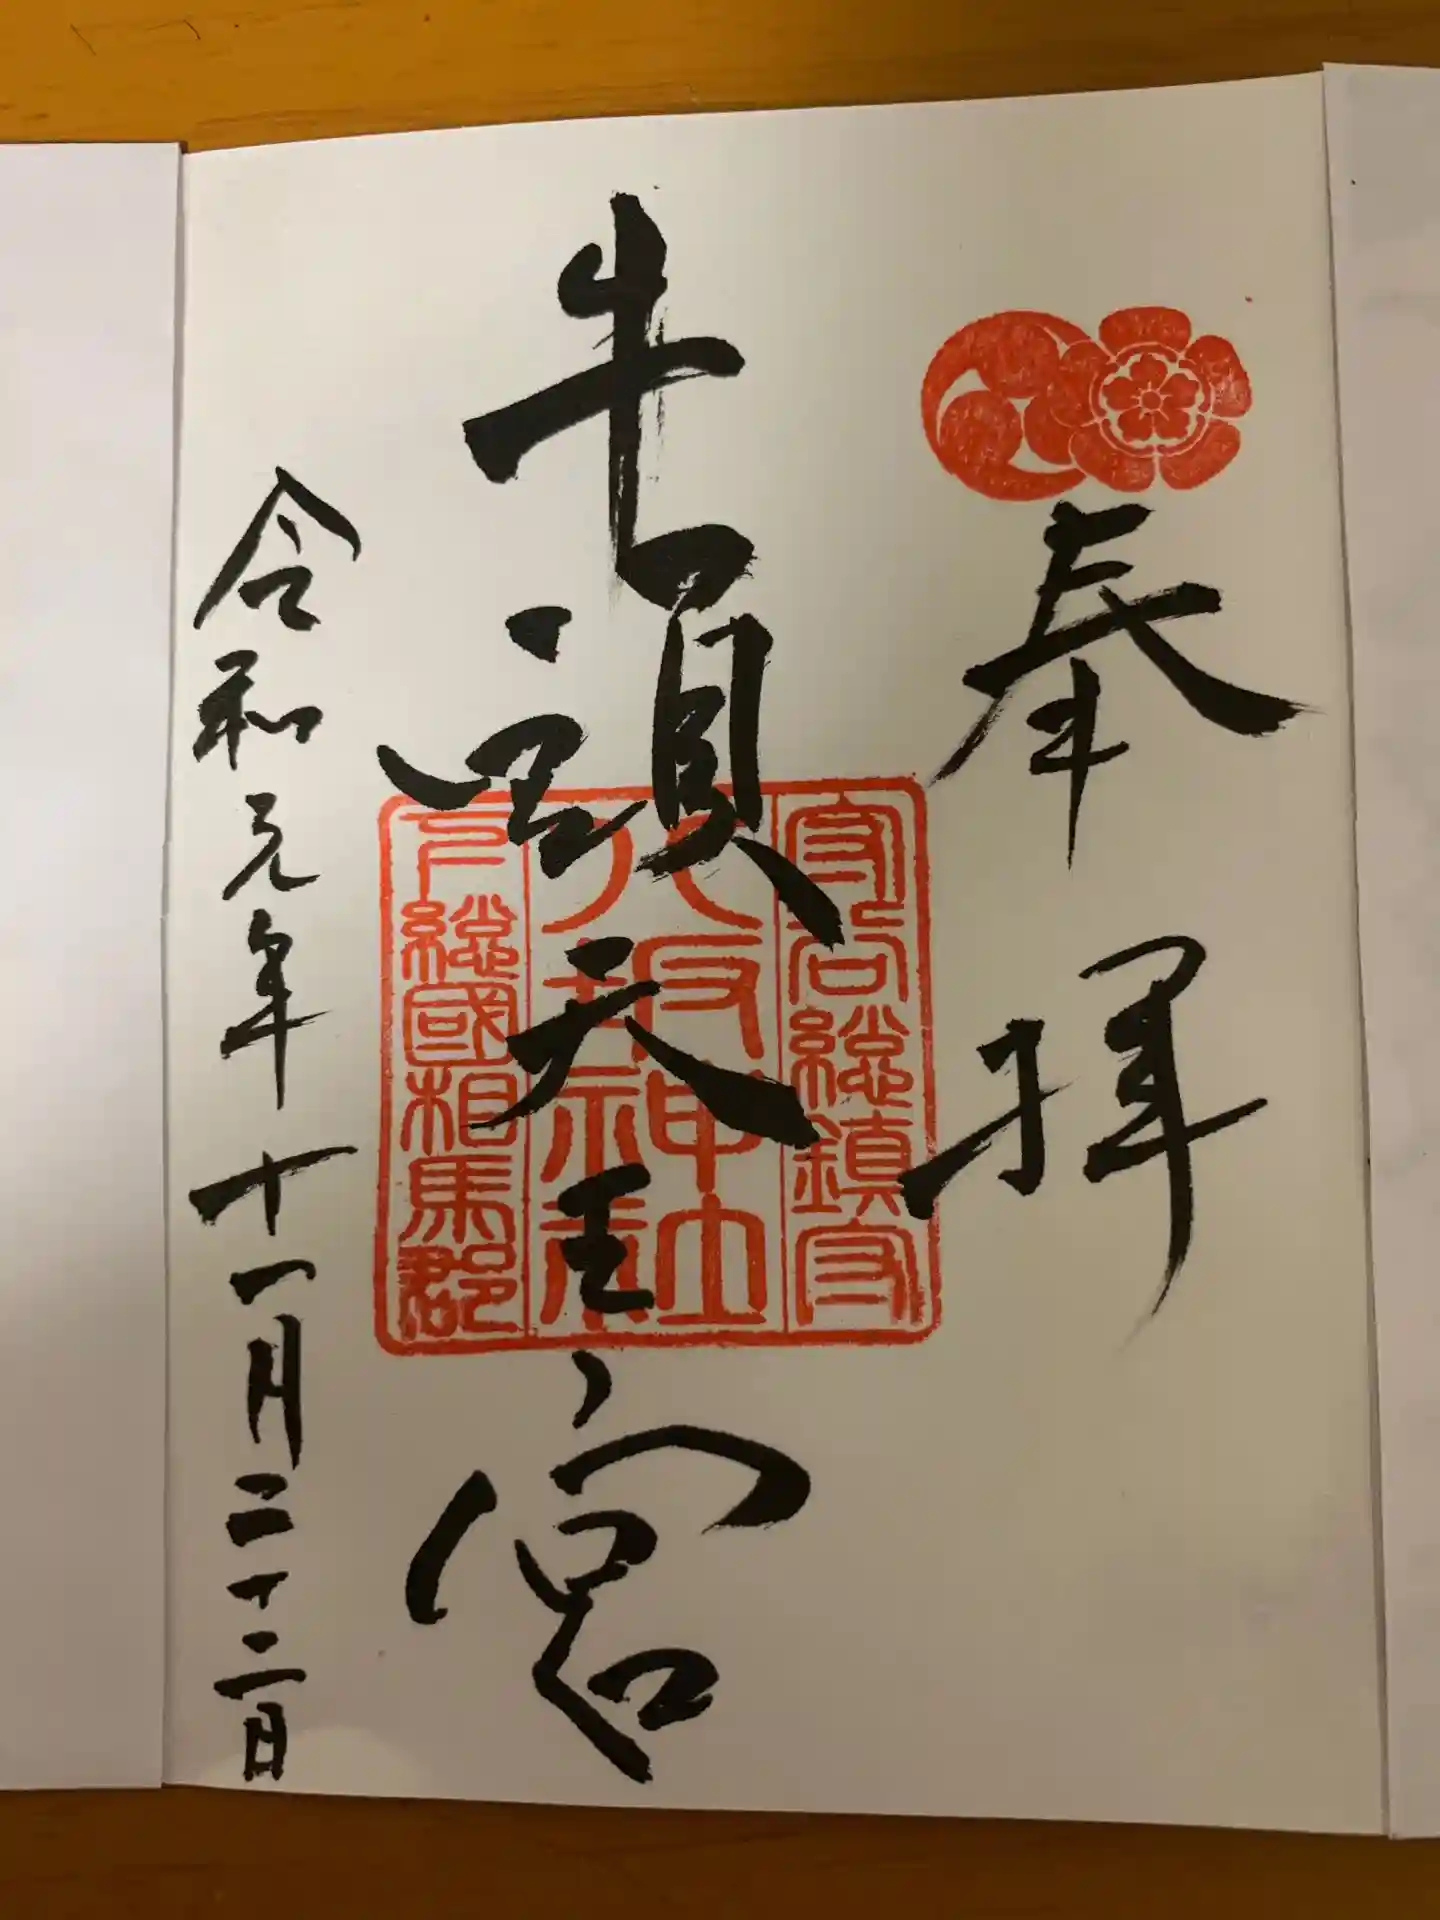 奉拝
守谷總鎮守
牛頭天王宮
八坂神社
下總國相馬郡
令和元年十一月二十二日